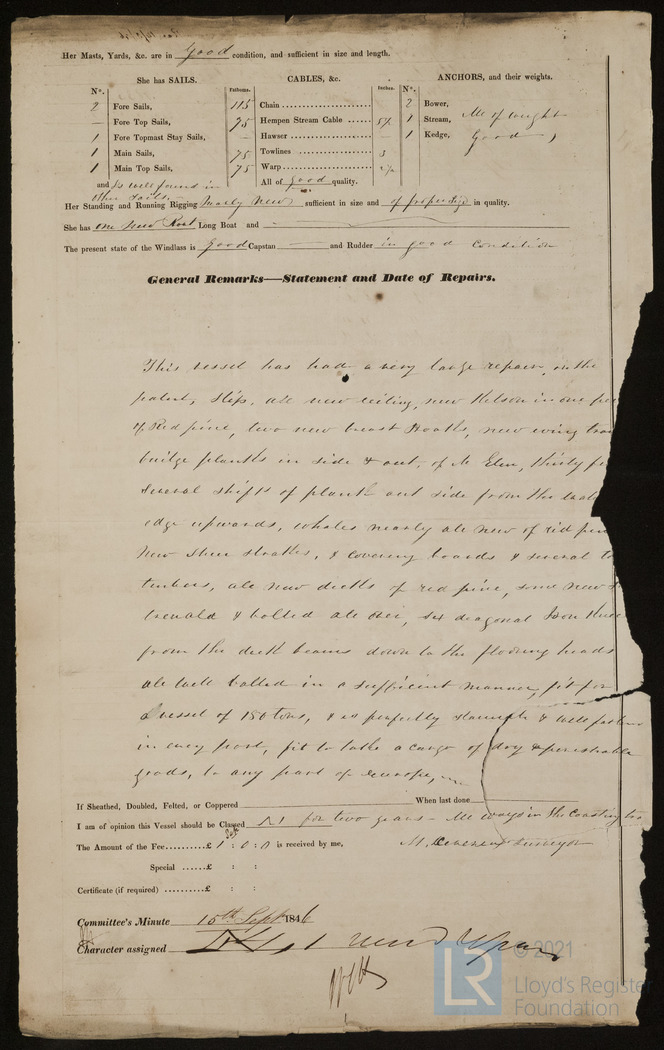 Her Masts, Yards, &c. are in Good condition, and sufficient in size and length.
She has SAILS.
CABLES, &c.
ANCHORS, and their weights.
No. Fathoms. Inches. No.
2 Fore Sails, 115 Chain 2 Bower,
— Fore Top Sails, 75 Hempen Stream Cable 1 Stream, All of weight
1 Fore Topmast Stay Sails, — Hawser 1 Kedge, Good
1 Main Sails, 75 Towlines 3
1 Main Top Sails, 75 Warp
and is well found in All of good quality.
other sails.
Her Standing and Running Rigging Nearly New sufficient in size and of proper size in quality.
She has one new Long Boat and
The present state of the Windlass is Good Capstan — and Rudder in good condition
General Remarks—Statement and Date of Repairs.
This vessel has had a very large repair, on the
patent, slip, all new ceiling, new Kelson in one
of Red pine, two new breast Hooks, new wing
bulge planks in side & out, of Elm, thirty
Several shifts of plank out side from the
edge upwards, whales nearly all new of red
New Sheer stroakes, & covering boards & several
timbers, all new decks of red pine, some new
trenald & bolted all over, six diagonal Iron
from the deck beams down to the flooring heads
all well bolted in a sufficient manner, fit for
a vessel of 150 tons, & is perfectly staunch & well
in every part, fit to take a cargo of dry & perishable
goods, to any part of Europe,
If Sheathed, Doubled, Felted, or Coppered When last done
I am of opinion this Vessel should be Classed A1 for two years — in the Coasting
The Amount of the Fee £ 1 : 0 : 0 is received by me, Surveyor
Special £ : :
Certificate (if required) £ : :
Committee's Minute 15th Sept 1846
Character assigned
© 2021
LR
Lloyd's Register
Foundation